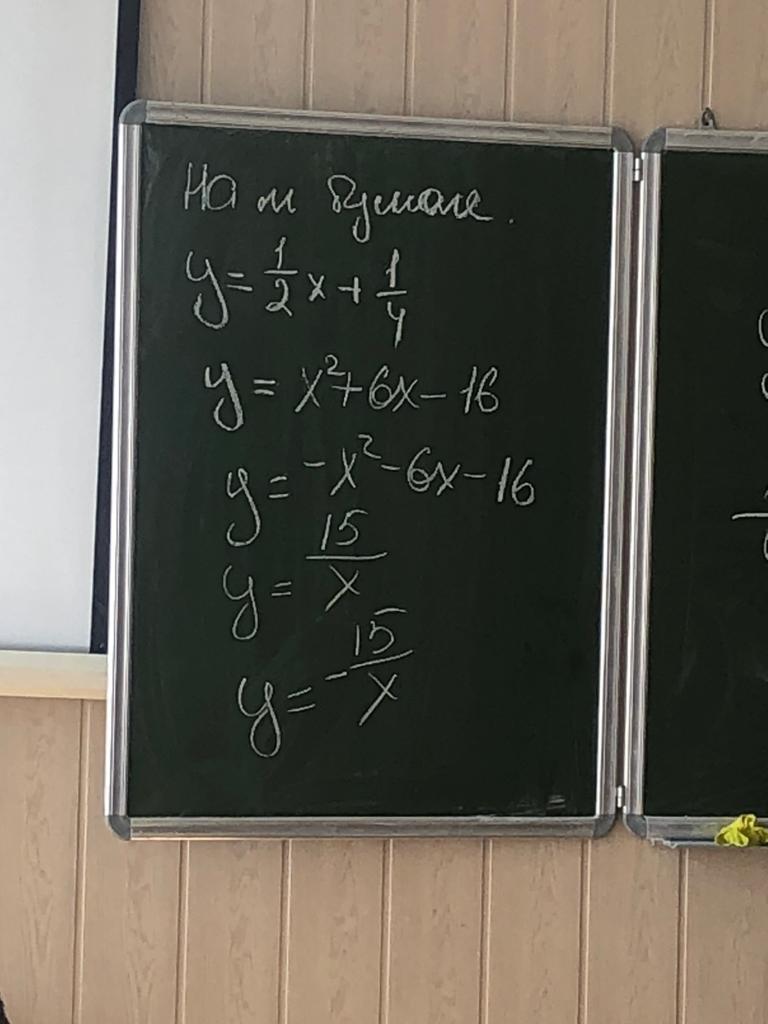 На м бумаге.
y = 1/2 x + 1/4
y = x² + 6x - 16
y = -x² - 6x - 16
y = 15/x
y = -15/x